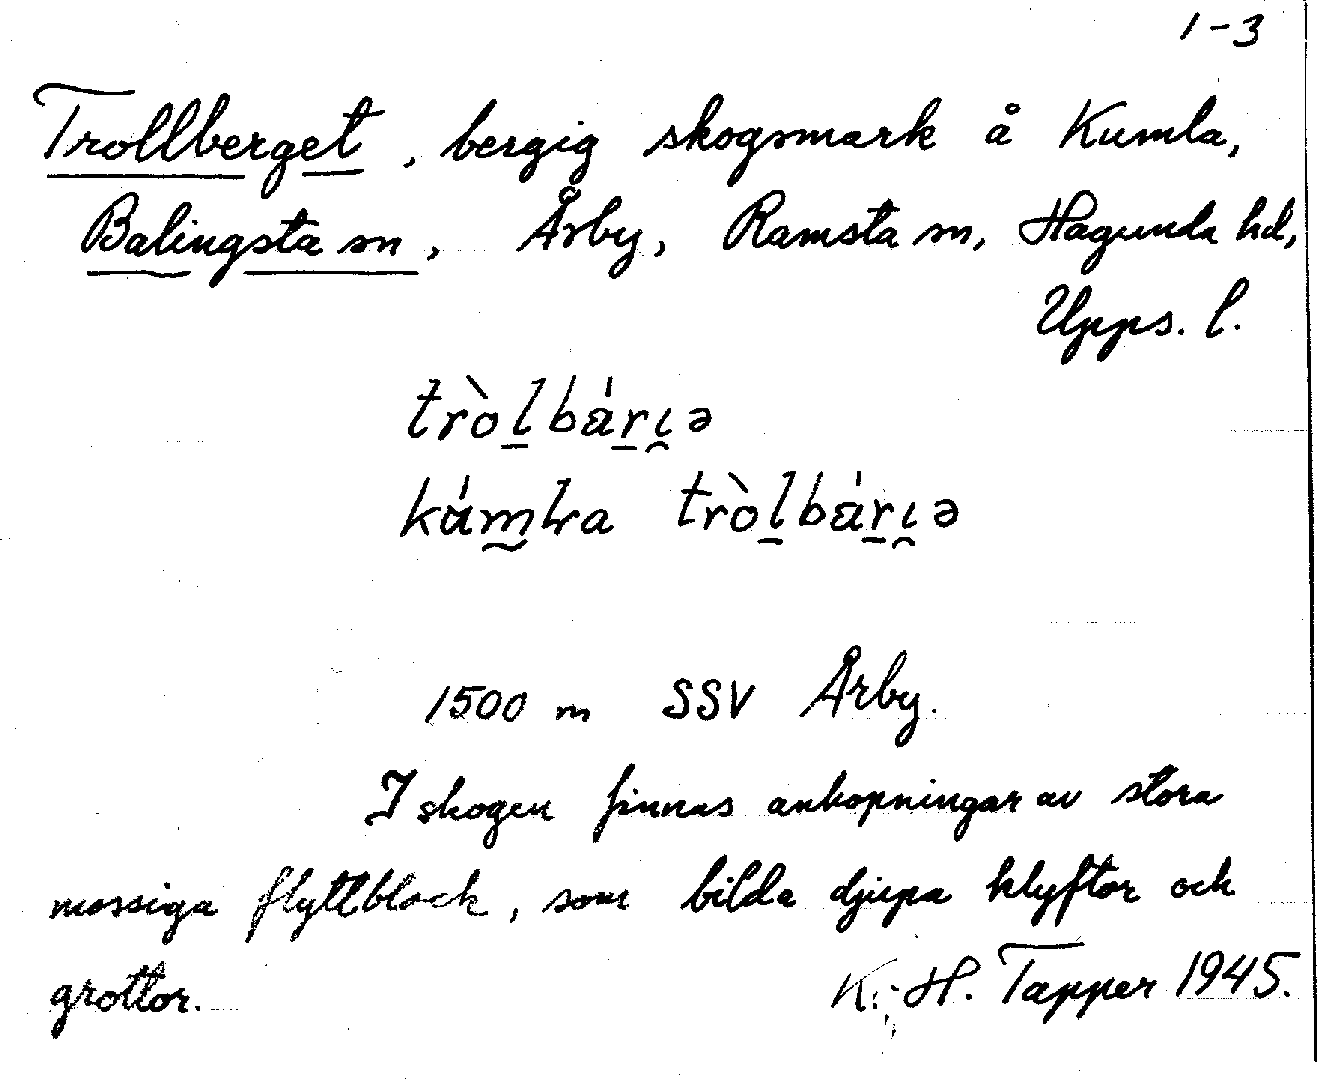 1-3
Trollberget, bergig skogsmark å Kumla,
Balingsta sn, Årby, Ramsta sn, Hagunda hd,
Upps. l.
tròl̲bár̲i̯ə
tròl̲bár̲i̯ə
1500 m SSV Årby.
I skogen finnas anhopningar av stora
mossiga flyttblock, som bilda djupa klyftor och
grottor. K.-H. Tapper 1945.